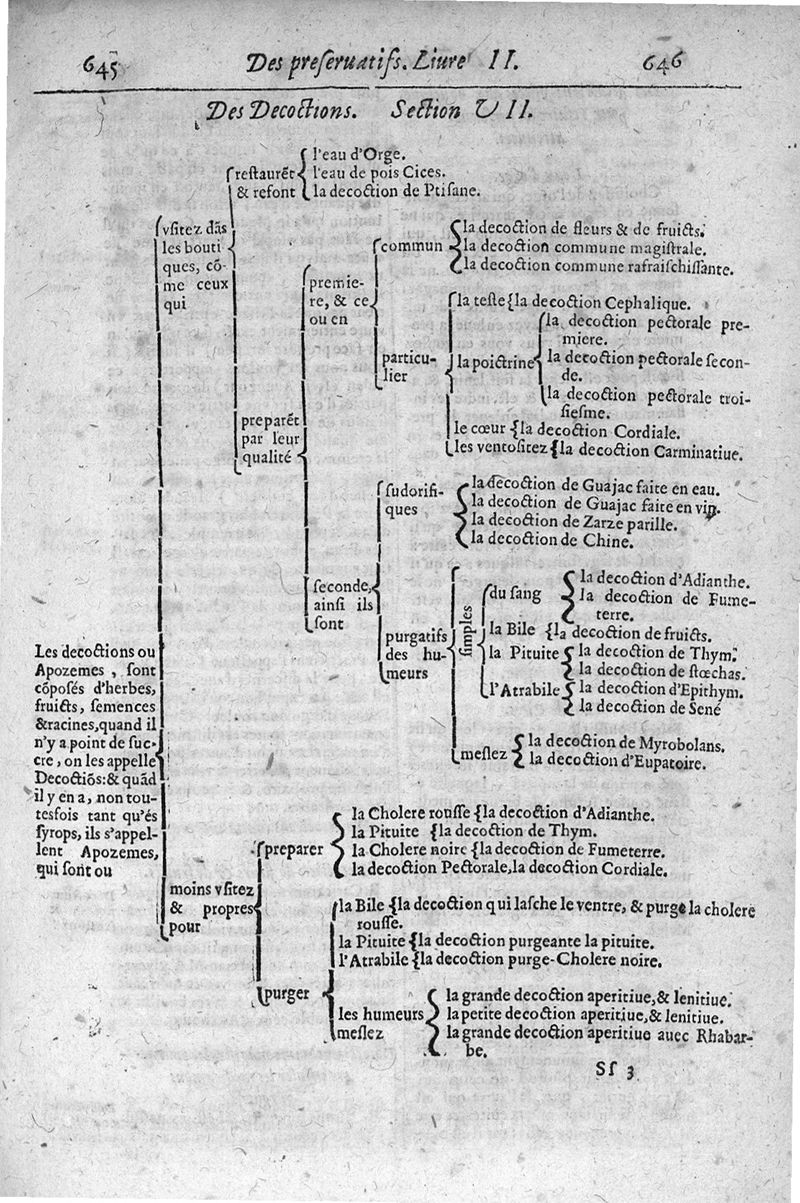 645 Des preſeruatifs. Liure II. 646
Des Decoctions. Section VII.
Les decoctions ou
Apozemes, ſont
cōpoſés d'herbes,
fruicts, ſemences
&racines,quand il
n'y a point de ſuc-
cre, on les appelle
Decoctiōs:& quād
il y en a, non tou-
tesfois tant qu'és
ſyrops, ils s'appel-
lent Apozemes,
qui ſont ou
vſitez dās
les bouti
ques, cō-
me ceux
qui
reſtaurēt
& refont
l'eau d'Orge.
l'eau de pois Cices.
la decoction de Ptiſane.
preparēt
par leur
qualité
premie-
re, & ce
ou en
commun
la decoction de fleurs & de fruicts.
la decoction commune magiſtrale.
la decoction commune rafraiſchiſſante.
particu-
lier
la teſte {la decoction Cephalique.
la poictrine
la decoction pectorale pre-
miere.
la decoction pectorale ſecon-
de.
la decoction pectorale troi-
ſieſme.
le cœur {la decoction Cordiale.
les ventoſitez {la decoction Carminatiue.
ſeconde,
ainſi ils
ſont
ſudorifi-
ques
la decoction de Guajac faite en eau.
la decoction de Guajac faite en vin.
la decoction de Zarze parille.
la decoction de Chine.
purgatifs
des hu-
meurs
ſimples
du ſang
la decoction d'Adianthe.
la decoction de Fume-
terre.
la Bile {la decoction de fruicts.
la Pituite
la decoction de Thym.
la decoction de ſtœchas.
l'Atrabile
la decoction d'Epithym.
la decoction de Sené
meſlez
la decoction de Myrobolans.
la decoction d'Eupatoire.
moins vſitez
& propres
pour
preparer
la Cholere rouſſe {la decoction d'Adianthe.
la Pituite {la decoction de Thym.
la Cholere noire {la decoction de Fumeterre.
la decoction Pectorale,la decoction Cordiale.
purger
la Bile {la decoction qui laſche le ventre, & purge la cholere
rouſſe.
la Pituite {la decoction purgeante la pituite.
l'Atrabile {la decoction purge-Cholere noire.
les humeurs
meſlez
la grande decoction aperitiue,& lenitiue.
la petite decoction aperitiue,& lenitiue.
la grande decoction aperitiue auec Rhabar-
be.
Sſ 3